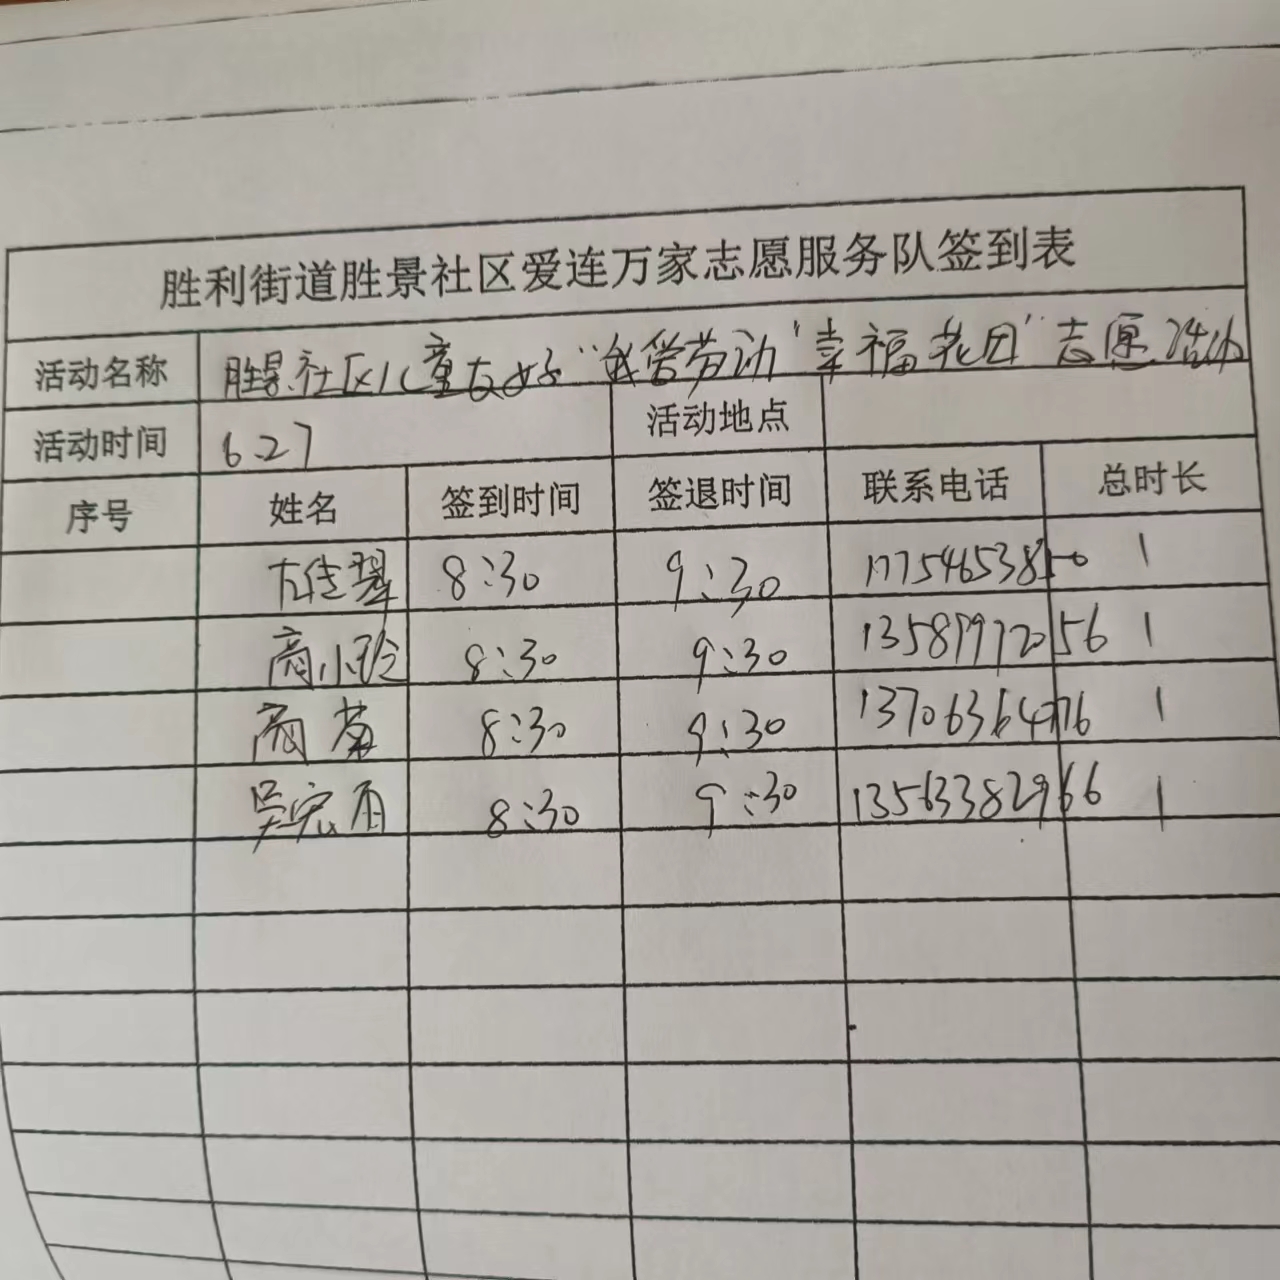 胜利街道胜景社区爱连万家志愿服务队签到表
活动名称 胜景社区儿童友好“我爱劳动“幸福花园”志愿活动
活动时间 6.27 活动地点
序号 姓名 签到时间 签退时间 联系电话 总时长
8:30 9:30 1
商小玲 8:30 9:30 1
商菊 8:30 9:30 1
吴宏雨 8:30 9:30 13563382966 1